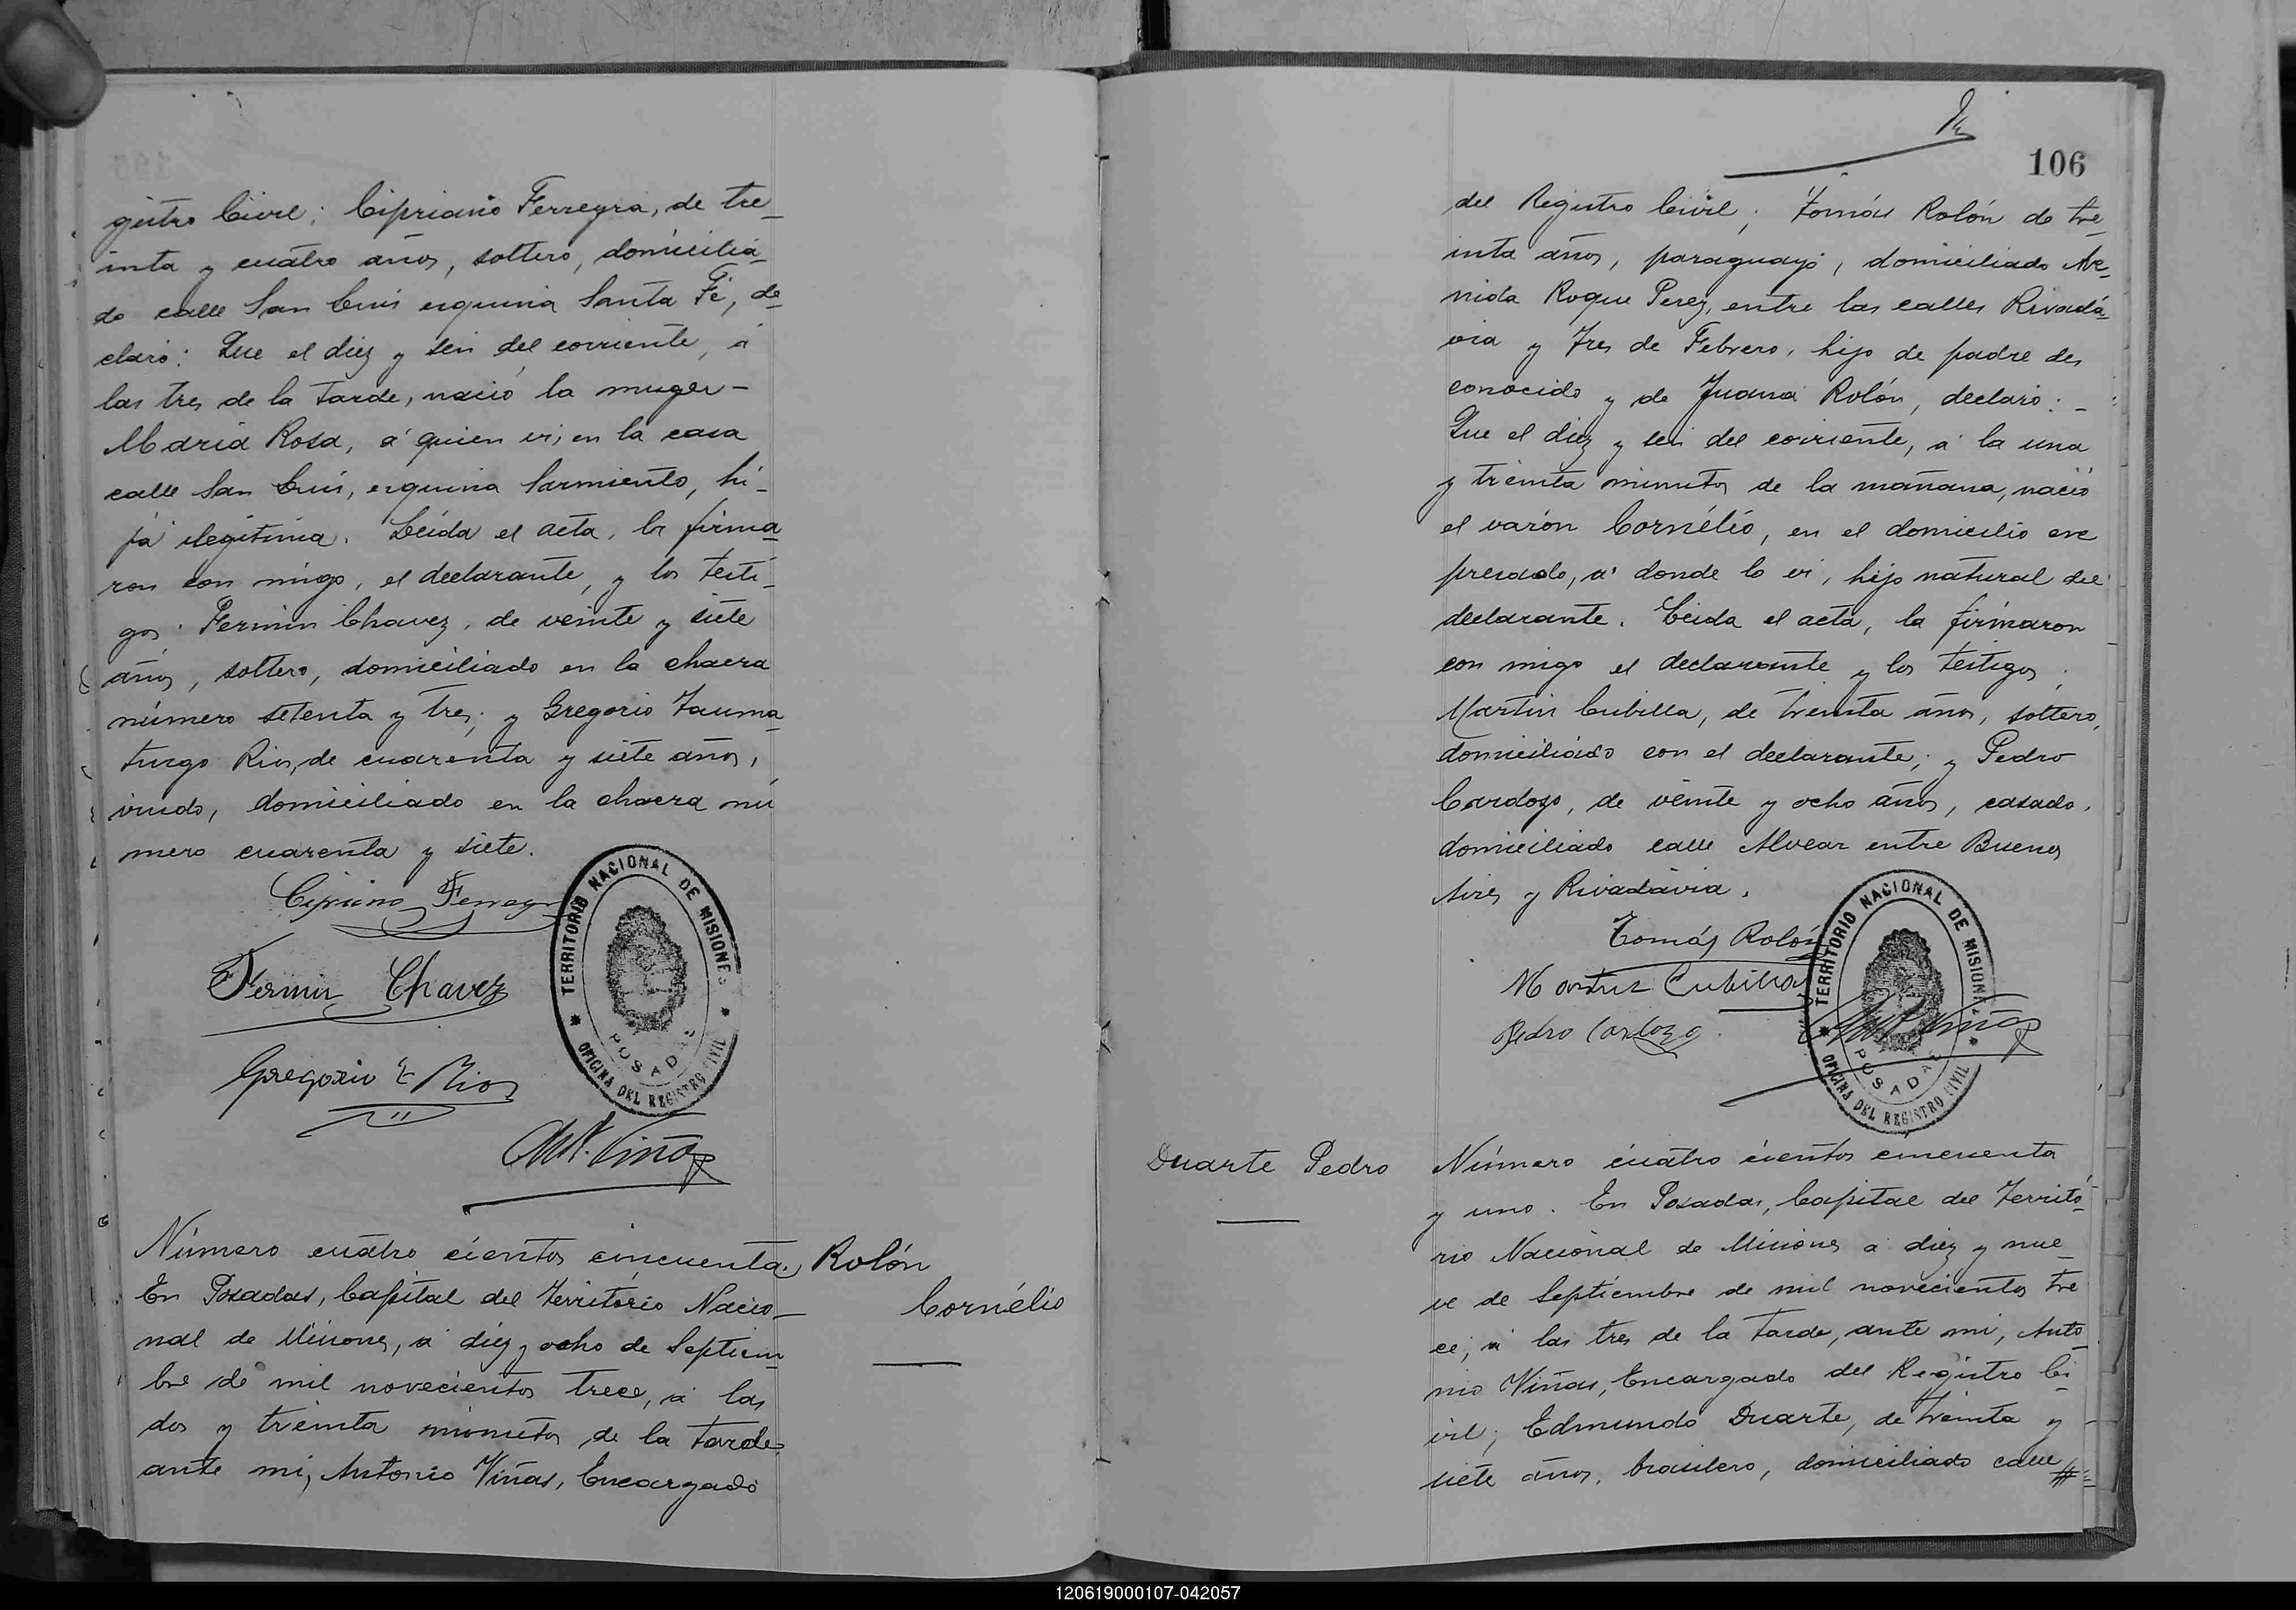 gistro Civil; Cipriano Ferreyra, de tre_
inta y cuatro años, soltero, domicilia_
do calle San Luis esquina Santa Fé, de_
claró: Que el diez y seis del corriente, á
las tres de la tarde, nació la muger-
María Rosa, á quien vi, en la casa
calle San Luis, esquina Sarmiento, hi_
ja ilegítima. Leída el acta, la firma_
ron con migo, el declarante, y los testi_
gos: Fermin Chavez, de veinte y siete
años, soltero, domiciliado en la chacra
número setenta y tres; y Gregorio Tauma_
turgo Rios, de cuarenta y siete años,
viudo, domiciliado en la chacra nú
mero cuarenta y siete.
Cipriano Ferreyra
Fermin Chavez
Gregorio T Rios
Ant. Viñas
TERRITORIO NACIONAL DE MISIONES
POSADAS
OFICINA DEL REGISTRO CIVIL
Número cuatro cientos cincuenta.
Rolón
Cornélio
En Posadas, Capital del Territorio Nacio_
nal de Misiones, á diez y ocho de Septiem_
bre de mil novecientos trece, á las
dos y treinta minutos de la tarde
ante mi, Antonio Viñas, Encargado
106
del Registro Civil; Tomás Rolón de tre_
inta años, paraguayo, domiciliado Ave_
nida Roque Perez, entre las calles Rivadá_
via y Tres de Febrero, hijo de padre des
conocido y de Juana Rolón, declaró: _
Que el diez y seis del corriente, á la una
y treinta minutos de la mañana, nació
el varón Cornélio, en el domicilio exc
presado, á donde lo vi, hijo natural del
declarante. Leida el acta, la firmaron
con migo el declarante y los testigos;
Martin Cubilla, de treinta años, soltero,
domiciliado con el declarante; y Pedro
Cardozo, de veinte y ocho años, casado,
domiciliado calle Alvear entre Buenos
Aires y Rivadavia.
Tomás Rolón
Martin Cubilla
Pedro Cardozo
Ant. Viñas
TERRITORIO NACIONAL DE MISIONES
POSADAS
OFICINA DEL REGISTRO CIVIL
Duarte Pedro
Número cuatro cientos cincuenta
y uno. En Posadas, Capital del Territó_
rio Nacional de Misiones á diez y nue_
ve de Septiembre de mil novecientos tre
ce, á las tres de la tarde, ante mi, Anto_
nio Viñas, Encargado del Registro Ci_
vil; Edmundo Duarte, de treinta y
siete años, brasilero, domiciliado calle
120619000107-042057